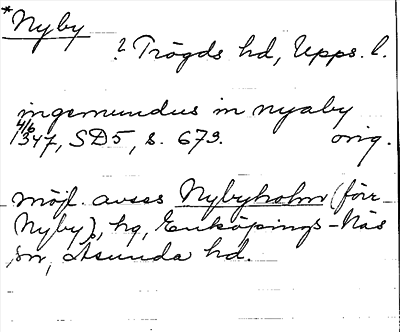 *Nyby
? Trögds hd, Upps. l.
ingemundus in nyaby
4/6 1347, SD5, s. 673. orig.
möjl. avses Nybyholm (förr
Nyby), hg, Enköpings-Näs
sn, Åsunda hd.